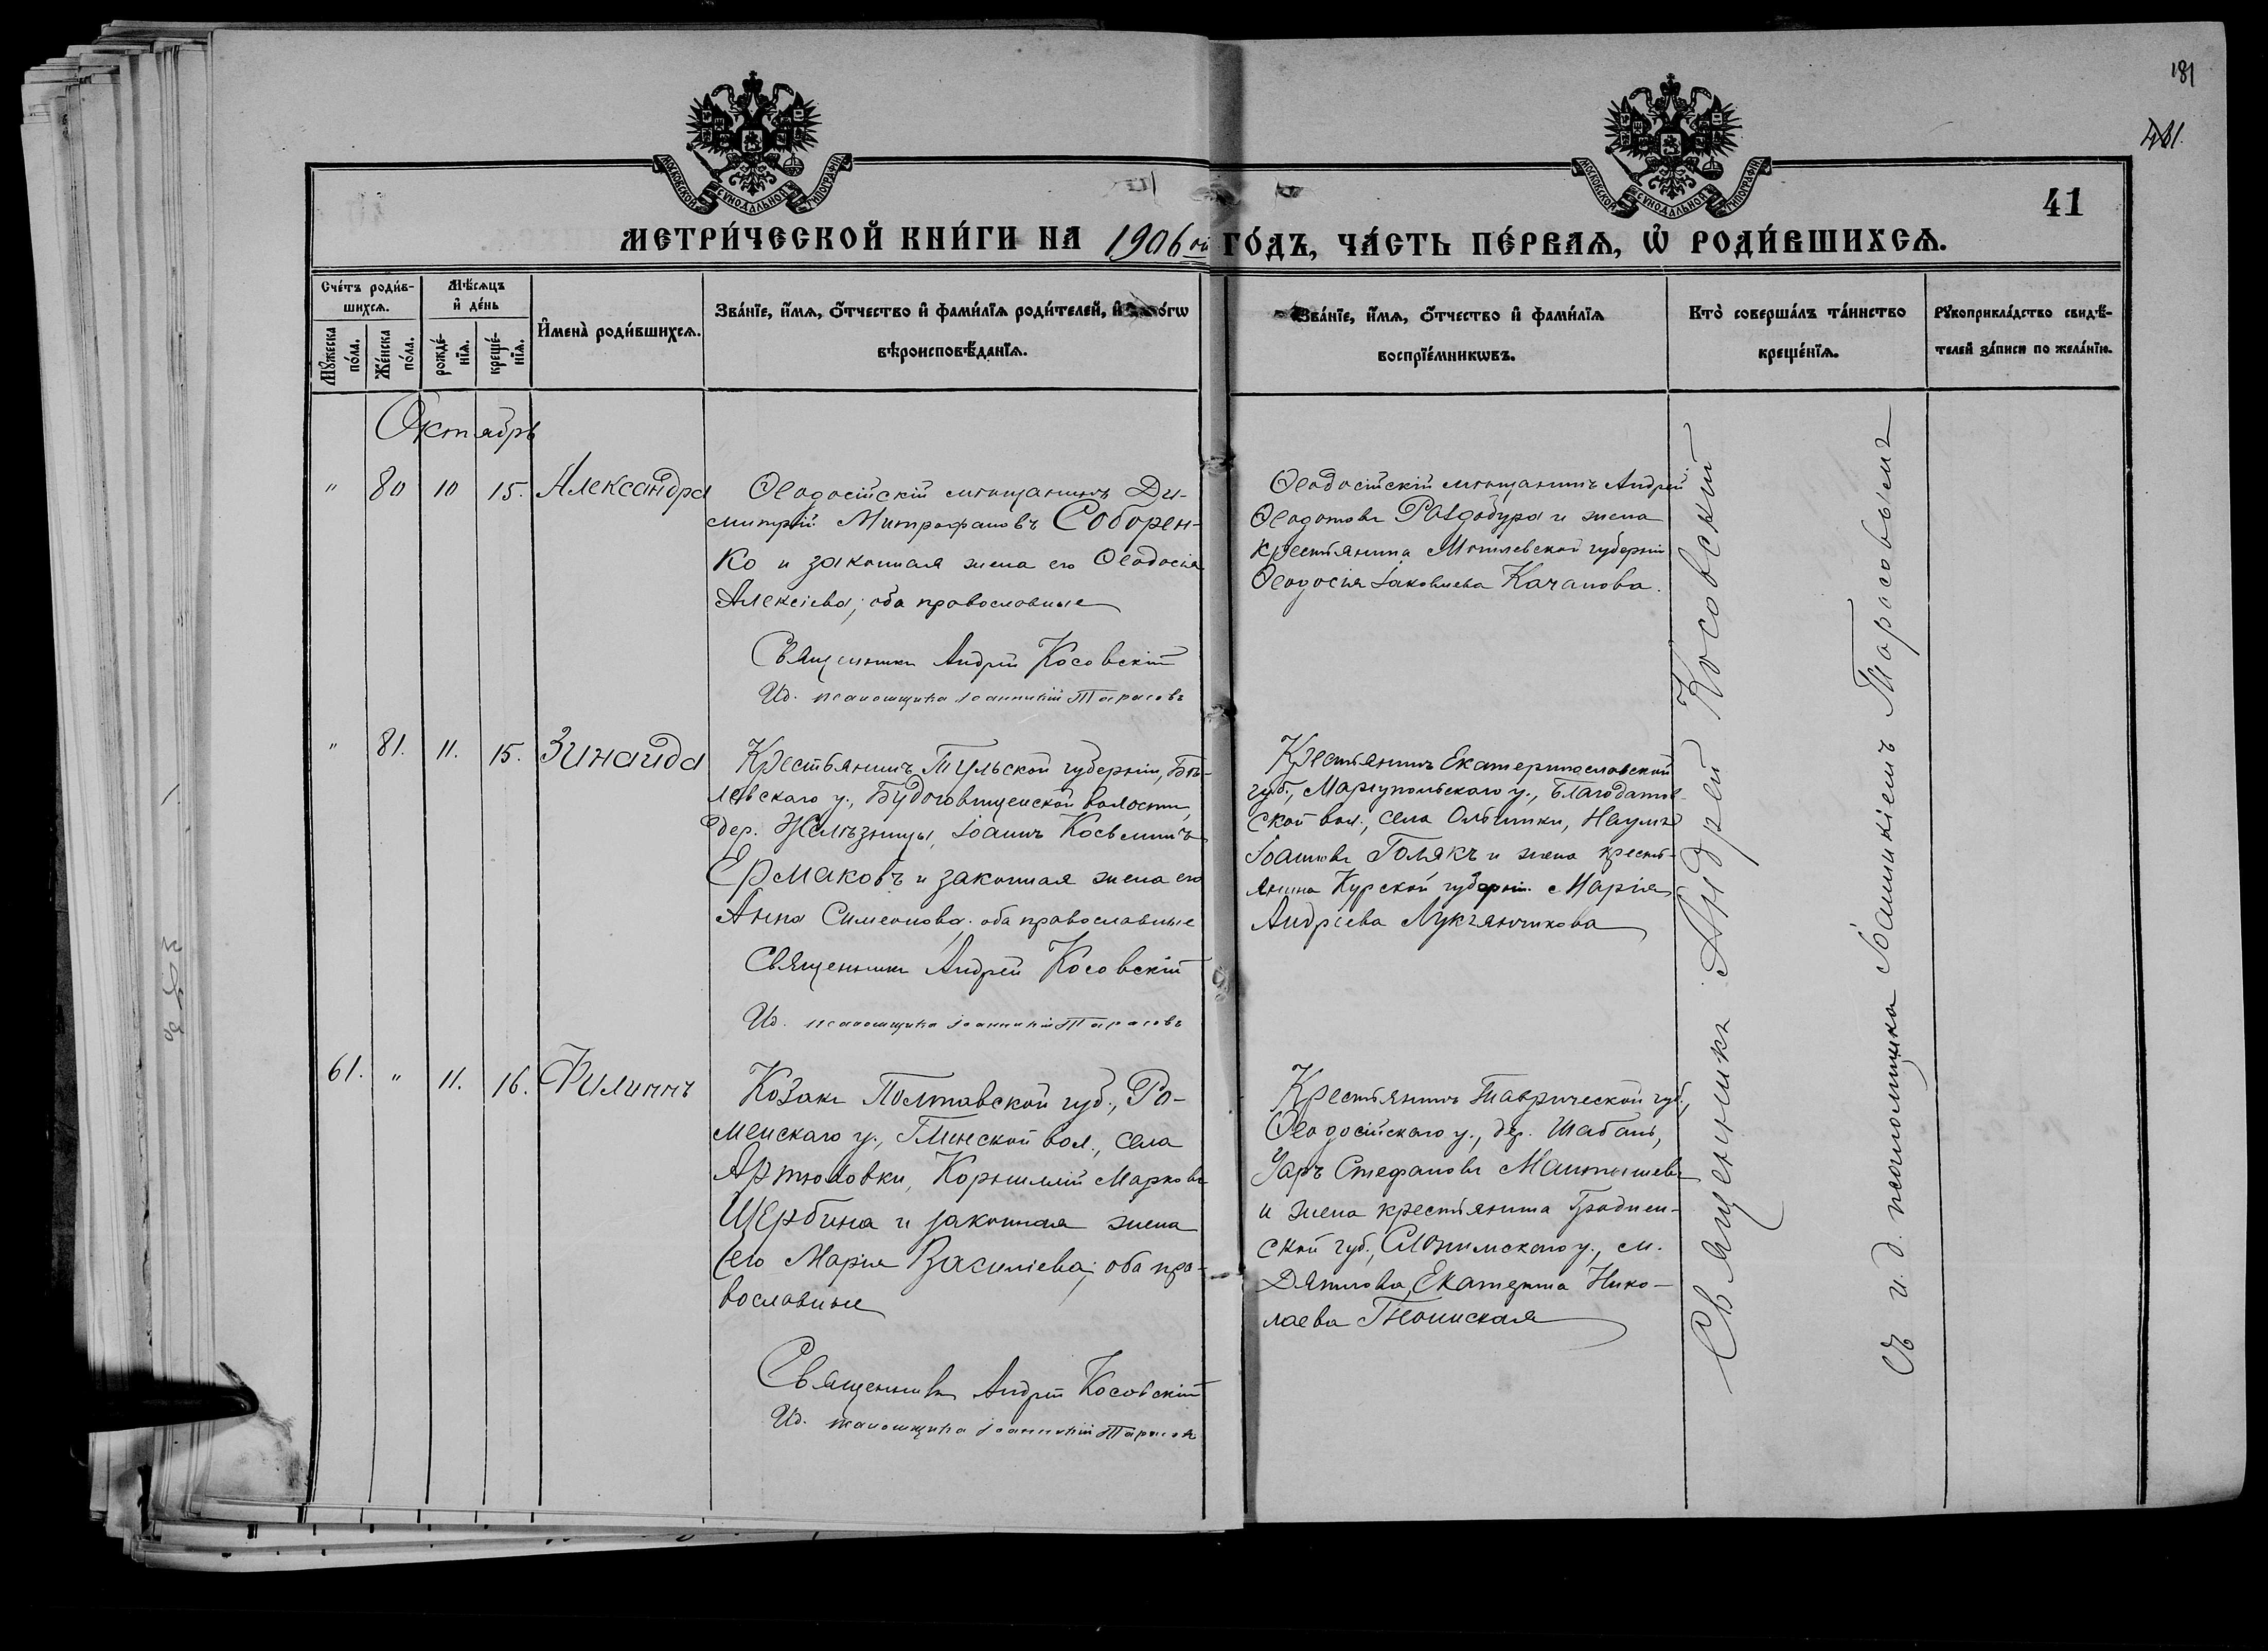 181
401.
МОСКОВСКОЙ СѴНОДАЛЬНОЙ ТИПОГРАФІИ
МОСКОВСКОЙ СѴНОДАЛЬНОЙ ТИПОГРАФІИ
41
МЕТРИ́ЧЕСКОЙ КНИ́ГИ НА 1906 ой ГО́ДЪ, ЧА́СТЬ ПЕ́РВАѦ, Ѡ҆ РОДИ́ВШИХСѦ.
Сче́тъ роди́в-
шихсѧ.
Мꙋ́жеска по́ла.
Же́нска по́ла.
Мѣ́сѧцъ
и҆ де́нь
рожде́-
нїѧ.
креще́-
нїѧ.
И҆мена̀ роди́вшихсѧ.
Зва́нїе, и҆́мѧ, ѻ҆́тчество и҆ фами́лїѧ роди́телей, и҆
вѣроисповѣ́данїѧ.
Зва́нїе, и҆́мѧ, ѻ҆́тчество и҆ фами́лїѧ
воспрїе́мникѡвъ.
Кто̀ соверша́лъ та́инство
креще́нїѧ.
Рꙋкоприкла́дство свидѣ́-
телей за́писи по жела́нїю.
Октябрь
" 80 10 15. Александра
Ѳеодосійскій мѣщанинъ Ди-
митрій Митрофановъ Соборен-
ко и законная жена его Ѳеодосія
Алексіева; оба православные
Священникъ Андрей Косовскій
И.д. псаломщика Іоанникій Тарасовъ
Ѳеодосійскій мѣщанинъ Андрей
Ѳеодотовъ Раздобура и жена
крестьянина Могилевской губерніи
Ѳеодосія Іаковлева Качанова.
" 81. 11. 15. Зинаида
Крестьянинъ Тульской губерніи, Бѣ-
левскаго у., Будоговищенской волости,
дер. Желѣзницы, Іоаннъ Косьминъ
Ермаковъ и законная жена его
Анна Симеонова; оба православные
Священникъ Андрей Косовскій
И.д. псаломщика Іоанникій Тарасовъ
Крестьянинъ Екатеринославской
губ., Маріупольскаго у., Благодатов-
ской вол., села Ольгинки, Наумъ
Іоанновъ Голякъ и жена кресть-
янина Курской губерніи Марія
Андріева Лукъянчикова
61. " 11. 16. Филиппъ
Козакъ Полтавской губ., Ро-
менскаго у., Глинской вол., села
Артюховки, Корнилій Марковъ
Щербина и законная жена
его Марія Василіева; оба пра-
вославные
Священникъ Андрей Косовскій
И.д. псаломщика Іоанникій Тарасовъ
Крестьянинъ Таврической губ.,
Ѳеодосійскаго у., дер. Шабань,
Уаръ Стефановъ
и жена крестьянина Гроднен-
ской губ., Слонимскаго у., м.
Дятлова, Екатерина Нико-
лаева
Священникъ Андрей Косовскій
съ и.д. псаломщика Іоанникіемъ Тарасовымъ